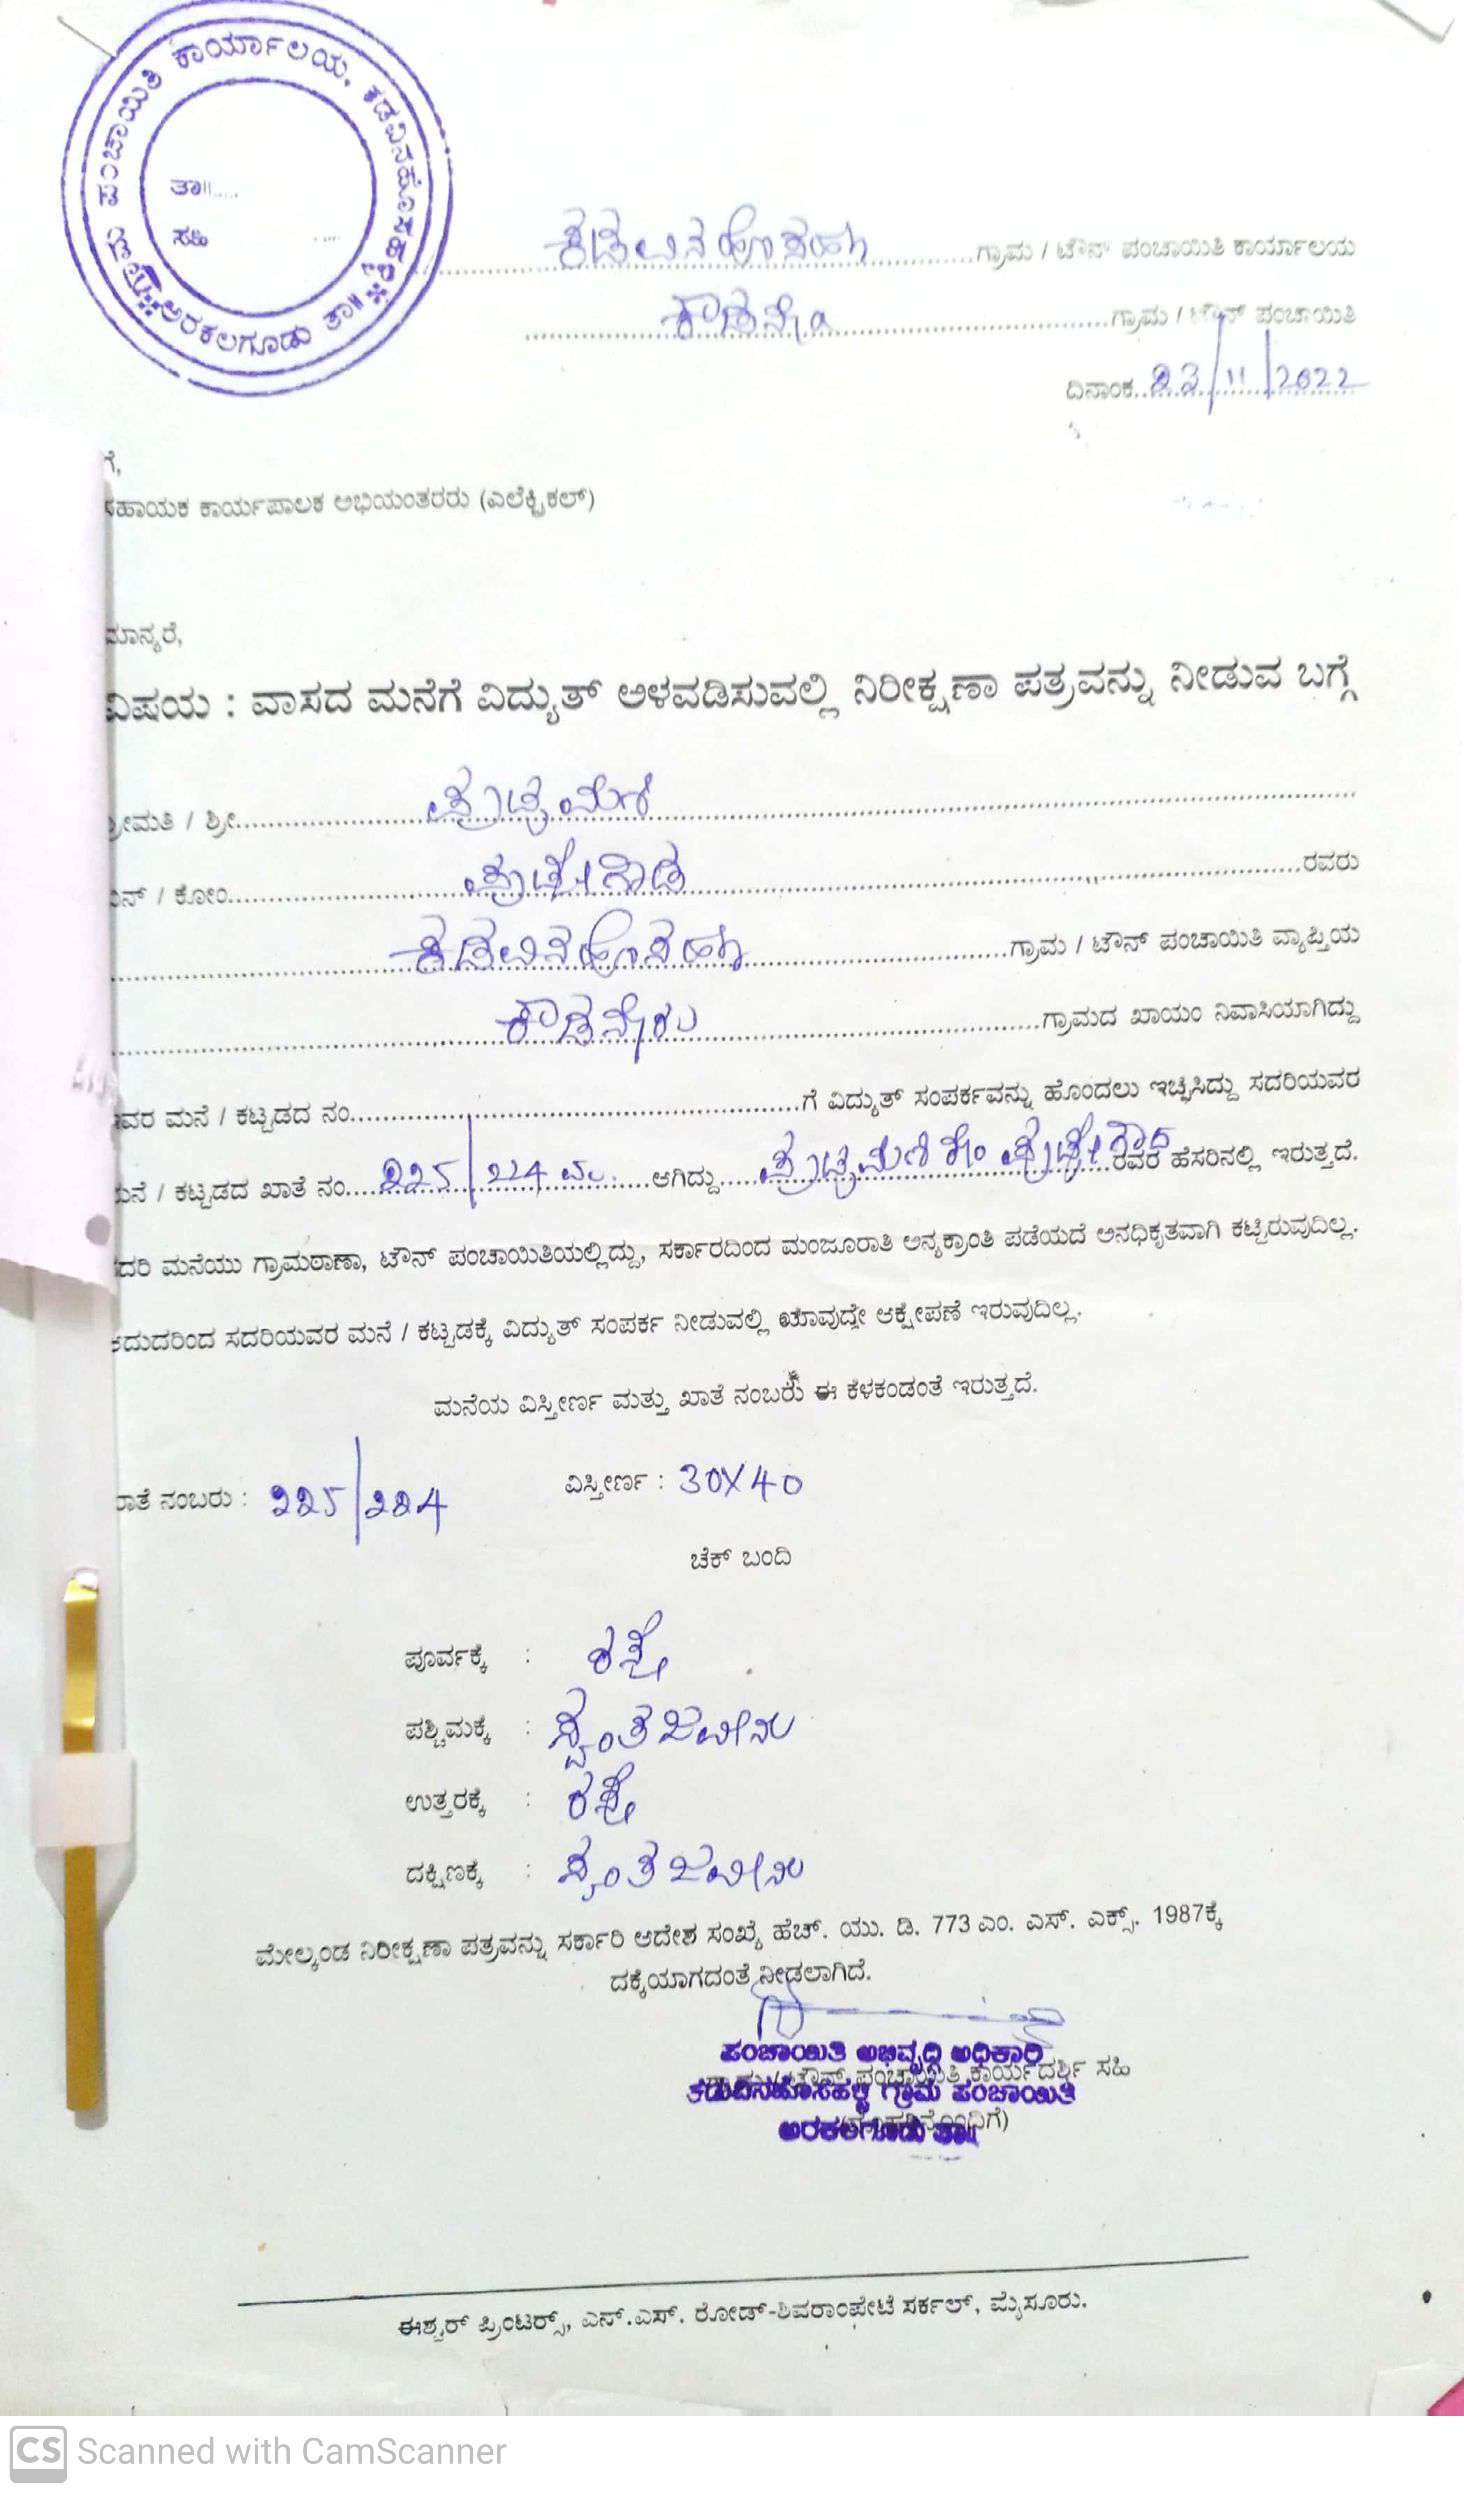 ಗ್ರಾಮ ಪಂಚಾಯಿತಿ ಕಾರ್ಯಾಲಯ, ಕಡವಿನಹೊಸಹಳ್ಳಿ
ಅರಕಲಗೂಡು ತಾ||
ತಾ||.....
ಸಹಿ .....
ಕಡವಿನಹೊಸಹಳ್ಳಿ ಗ್ರಾಮ / ಟೌನ್ ಪಂಚಾಯಿತಿ ಕಾರ್ಯಾಲಯ
ಗ್ರಾಮ / ಟೌನ್ ಪಂಚಾಯಿತಿ
ದಿನಾಂಕ. 23/11/2022
ಗೆ,
ಸಹಾಯಕ ಕಾರ್ಯಪಾಲಕ ಅಭಿಯಂತರರು (ಎಲೆಕ್ಟ್ರಿಕಲ್)
ಮಾನ್ಯರೆ,
ವಿಷಯ : ವಾಸದ ಮನೆಗೆ ವಿದ್ಯುತ್ ಅಳವಡಿಸುವಲ್ಲಿ ನಿರೀಕ್ಷಣಾ ಪತ್ರವನ್ನು ನೀಡುವ ಬಗ್ಗೆ
ಶ್ರೀಮತಿ / ಶ್ರೀ. ಪುಟ್ಟಮಣಿ
ಬಿನ್ / ಕೋಂ. ಪುಟ್ಟೇಗೌಡ ರವರು
ಕಡವಿನಹೊಸಹಳ್ಳಿ ಗ್ರಾಮ / ಟೌನ್ ಪಂಚಾಯಿತಿ ವ್ಯಾಪ್ತಿಯ
ಗ್ರಾಮದ ಖಾಯಂ ನಿವಾಸಿಯಾಗಿದ್ದು
ಇವರ ಮನೆ / ಕಟ್ಟಡದ ನಂ. ಗೆ ವಿದ್ಯುತ್ ಸಂಪರ್ಕವನ್ನು ಹೊಂದಲು ಇಚ್ಛಿಸಿದ್ದು ಸದರಿಯವರ
ಮನೆ / ಕಟ್ಟಡದ ಖಾತೆ ನಂ. 225/224 ಆಗಿದ್ದು ಪುಟ್ಟಮಣಿ ಕೋಂ ಪುಟ್ಟೇಗೌಡ ರವರ ಹೆಸರಿನಲ್ಲಿ ಇರುತ್ತದೆ.
ಸದರಿ ಮನೆಯು ಗ್ರಾಮಠಾಣಾ, ಟೌನ್ ಪಂಚಾಯಿತಿಯಲ್ಲಿದ್ದು, ಸರ್ಕಾರದಿಂದ ಮಂಜೂರಾತಿ ಅನ್ಯಕ್ರಾಂತಿ ಪಡೆಯದೆ ಅನಧಿಕೃತವಾಗಿ ಕಟ್ಟಿರುವುದಿಲ್ಲ.
ಆದುದರಿಂದ ಸದರಿಯವರ ಮನೆ / ಕಟ್ಟಡಕ್ಕೆ ವಿದ್ಯುತ್ ಸಂಪರ್ಕ ನೀಡುವಲ್ಲಿ ಯಾವುದೇ ಆಕ್ಷೇಪಣೆ ಇರುವುದಿಲ್ಲ.
ಮನೆಯ ವಿಸ್ತೀರ್ಣ ಮತ್ತು ಖಾತೆ ನಂಬರು ಈ ಕೆಳಕಂಡಂತೆ ಇರುತ್ತದೆ.
ಖಾತೆ ನಂಬರು : 225/224 ವಿಸ್ತೀರ್ಣ : 30X40
ಚೆಕ್ ಬಂದಿ
ಪೂರ್ವಕ್ಕೆ : ರಸ್ತೆ
ಪಶ್ಚಿಮಕ್ಕೆ : ಸ್ವಂತ ಜಮೀನು
ಉತ್ತರಕ್ಕೆ : ರಸ್ತೆ
ದಕ್ಷಿಣಕ್ಕೆ : ಸ್ವಂತ ಜಮೀನು
ಮೇಲ್ಕಂಡ ನಿರೀಕ್ಷಣಾ ಪತ್ರವನ್ನು ಸರ್ಕಾರಿ ಆದೇಶ ಸಂಖ್ಯೆ ಹೆಚ್. ಯು. ಡಿ. 773 ಎಂ. ಎಸ್. ಎಕ್ಸ್. 1987ಕ್ಕೆ
ದಕ್ಕೆಯಾಗದಂತೆ ನೀಡಲಾಗಿದೆ.
ಪಂಚಾಯಿತಿ ಅಭಿವೃದ್ಧಿ ಅಧಿಕಾರಿ
ಟೌನ್ ಪಂಚಾಯಿತಿ ಕಾರ್ಯದರ್ಶಿ ಸಹಿ
ಕಡುವಿನಹೊಸಹಳ್ಳಿ ಗ್ರಾಮ ಪಂಚಾಯಿತಿ
ಅರಕಲಗೂಡು ತಾ||
ಈಶ್ವರ್ ಪ್ರಿಂಟರ್ಸ್, ಎನ್.ಎಸ್. ರೋಡ್-ಶಿವರಾಂಪೇಟೆ ಸರ್ಕಲ್, ಮೈಸೂರು.
CS Scanned with CamScanner